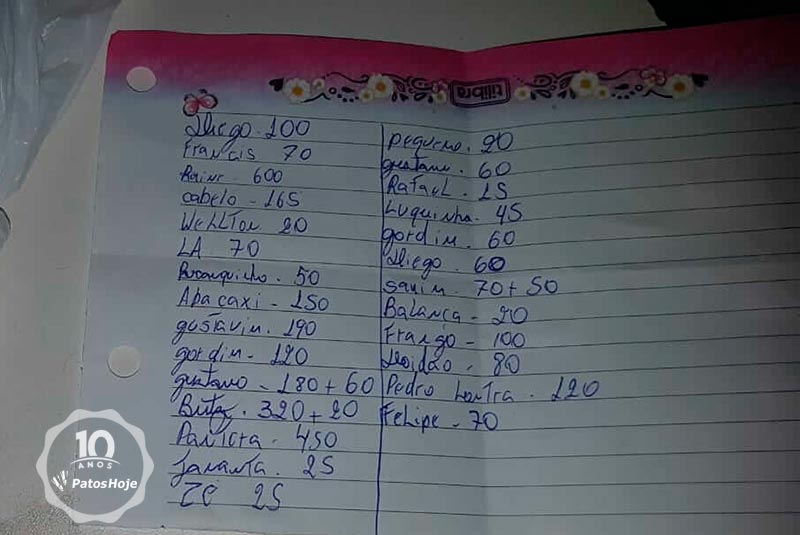 tilibra
Diego - 100
Francis 70
600
cabelo - 165
Wehllton 20
LA 70
Branquinho - 50
Abacaxi - 150
gustavin. 190
gordin - 120
gustavo - 180 + 60
320 + 20
Pantera - 450
Jananta - 25
ZE 25
pequeno. 20
gustavo. 60
Rafael. 15
Luquinha. 45
gordin. 60
Diego. 60
savin. 70 + 50
Balança - 20
Frango - 100
Doidão - 80
Pedro Lontra. 120
Felipe - 70
10
ANOS
PatosHoje